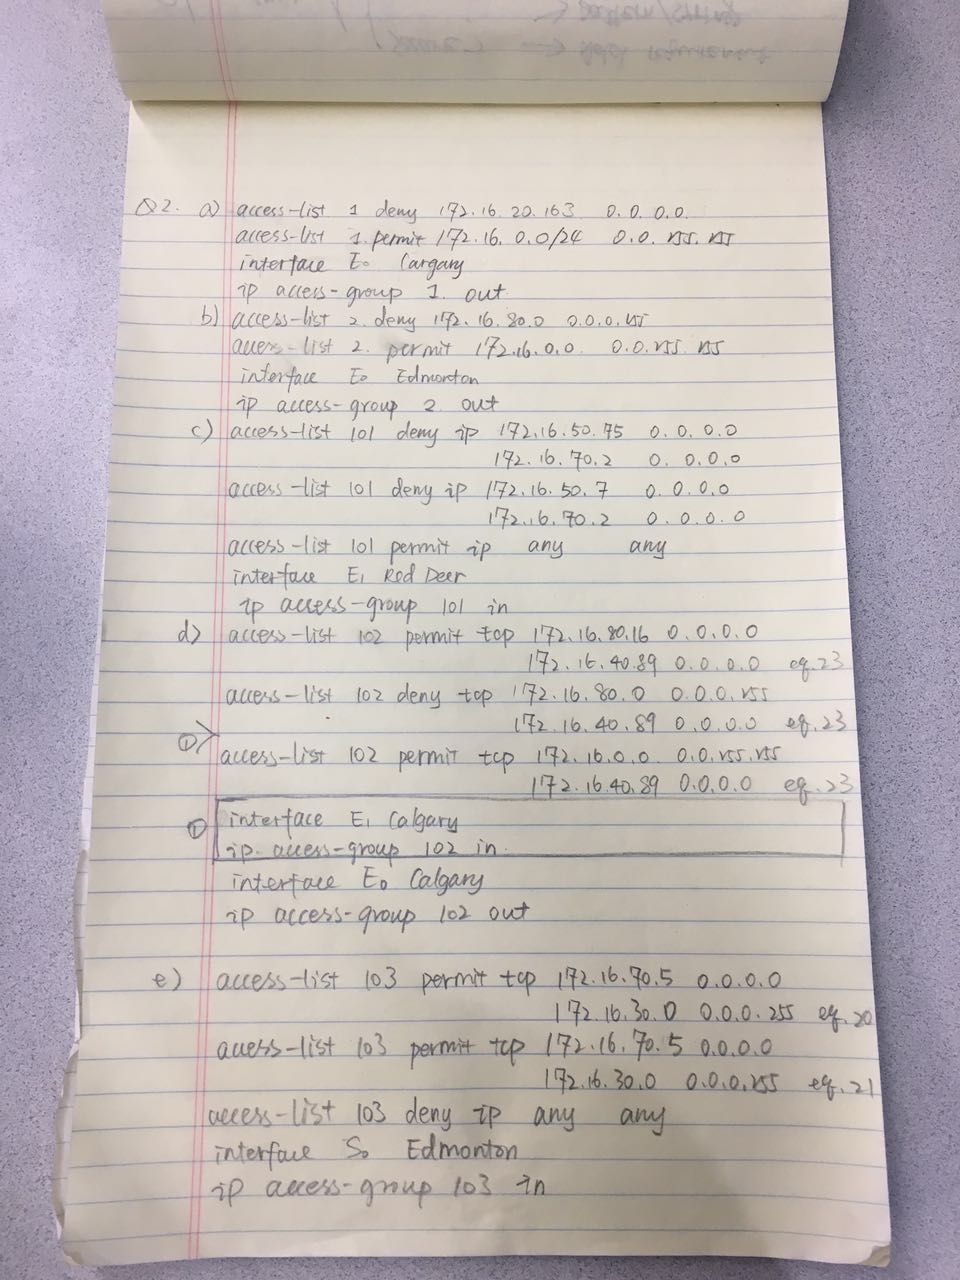 Q2. a) access-list 1 deny 172.16.20.163 0.0.0.0.
access-list 1. permit 172.16.0.0/24 0.0.255.255
interface E0 Cargary
ip access-group 1. out.
b) access-list 2. deny 172.16.80.0 0.0.0.255
access-list 2. permit 172.16.0.0. 0.0.255.255
interface E0 Edmonton
ip access-group 2 out
c) access-list 101 deny ip 172.16.50.75 0.0.0.0
172.16.70.2 0.0.0.0
access-list 101 deny ip 172.16.50.7 0.0.0.0
172.16.70.2 0.0.0.0
access-list 101 permit ip any any
interface E1 Red Deer
ip access-group 101 in
d) access-list 102 permit tcp 172.16.80.16 0.0.0.0
172.16.40.89 0.0.0.0 eq.23
access-list 102 deny tcp 172.16.80.0 0.0.0.255
172.16.40.89 0.0.0.0 eq.23
① >
access-list 102 permit tcp 172.16.0.0 0.0.255.255
172.16.40.89 0.0.0.0 eq.23
① interface E1 Calgary
ip access-group 102 in.
interface E0 Calgary
ip access-group 102 out
e) access-list 103 permit tcp 172.16.70.5 0.0.0.0
172.16.30.0 0.0.0.255 eq.20
access-list 103 permit tcp 172.16.70.5 0.0.0.0
172.16.30.0 0.0.0.255 eq.21
access-list 103 deny ip any any
interface S0 Edmonton
ip access-group 103 in